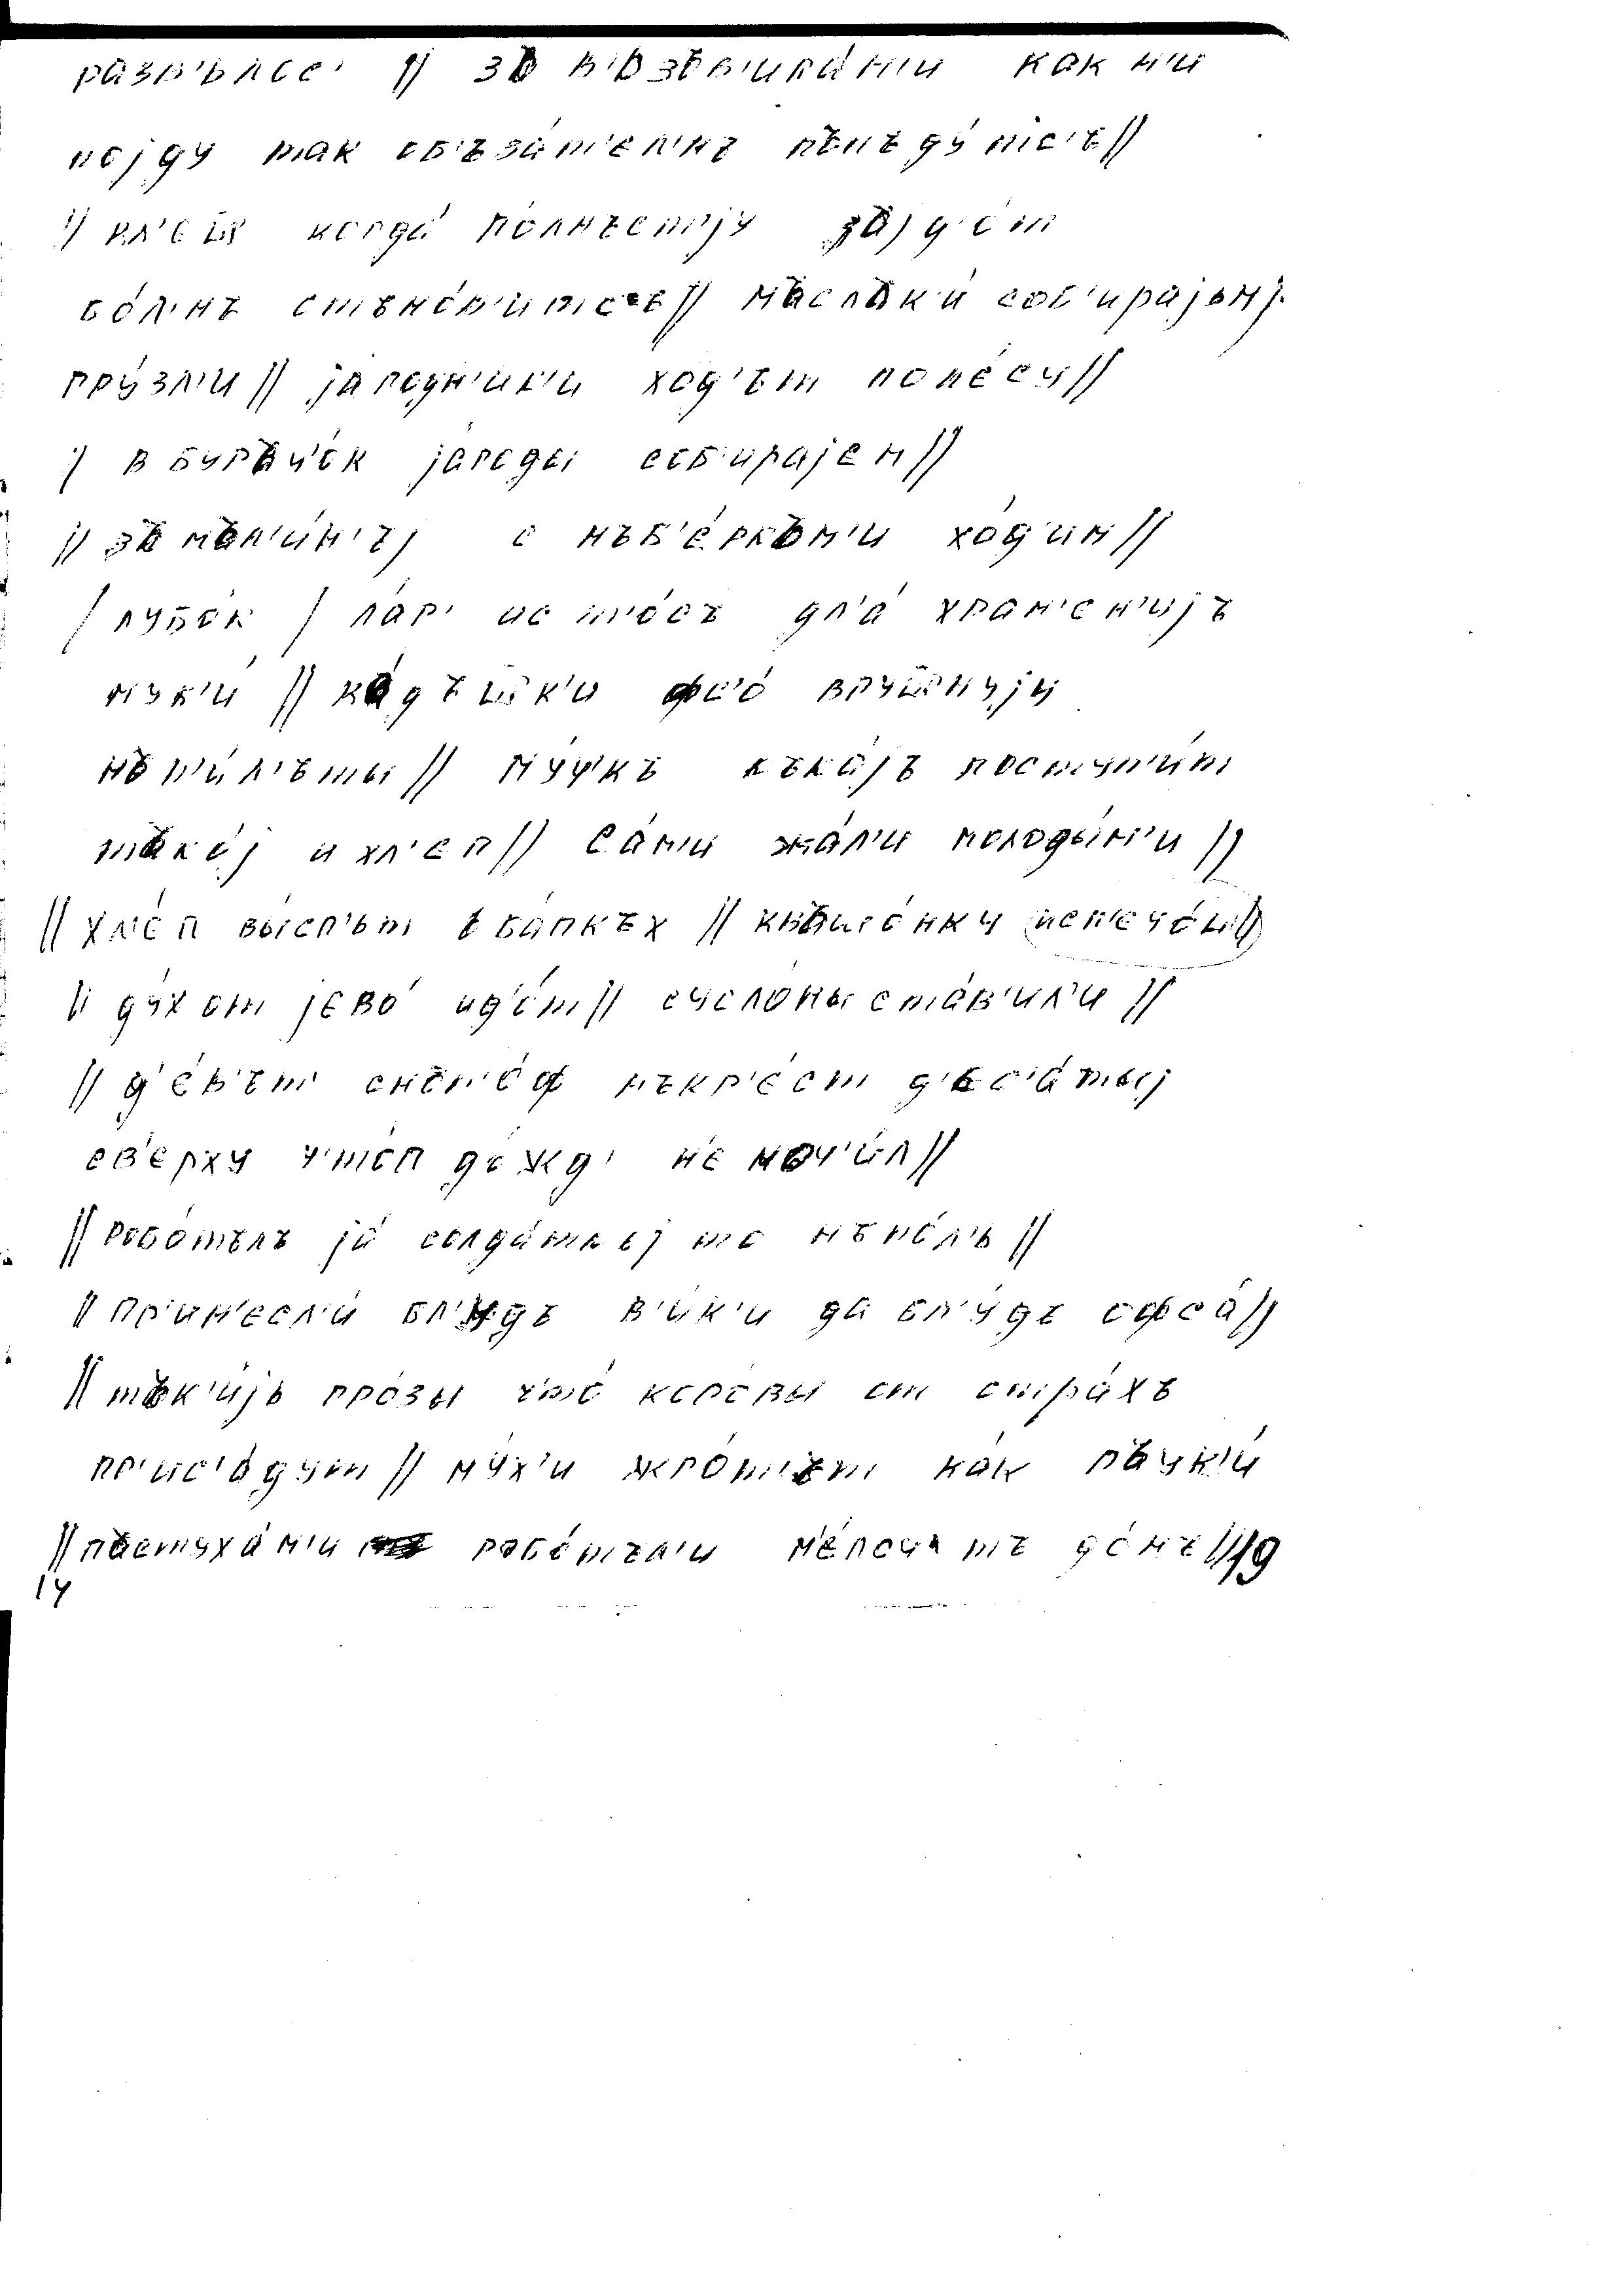 разв'ьлсс' // зъ в'ьзъв'ика́м'и как н'и
појду так об'ъза́т'ел'нъ пъпъду́тс'ъ//
// кл'ещ когда́ по́лнъст'јју зъјд'о́т
бо́л'нъ стъно́в'итсъ// мъслък'и́ соб'ирајьм/
гру́зд'и // ја́годн'ик'и ход'ът поле́су//
/ в бурач'о́к ја́годы соб'ирајем//
// зъ мал'и́н'ъј с нъб'е́ркъм'и хо́д'им//
/ лубо́к / ла́р' ис т'о́съ дл'а́ хран'ен'ијъ
мук'и́ // ка́дъшк'и фс'о́ вручнују
нъп'и́л'ъты // му́ч'къ къка́јъ поступ'и́т
тако́ј и хл'еп // Са́м'и жа́л'и молоды́м'и //
// хл'е́п вы́сп'ьт ъ ба́пкъх // квашо́нку испечо́ш//
// ду́х от јево́ ид'о́т // сусло́ны ста́в'ил'и //
// д'е́в'ът' сноп'о́ф нъкр'е́ст д'ес'а́тыј
св'е́рху ч'то́п до́жд' н'е моч'и́л//
// робо́тълъ ја́ солда́ткој то нъпо́л'ь //
// пр'ин'есл'и́ бл'у́дъ в'и́к'и да бл'у́дъ офса́//
// так'и́јь гро́зы что́ коровы от стра́хъ
пр'ис'а́дут // му́х'и жго́тът ка́к паук'и́
// пъстуха́м'и робо́тъл'и м'е́лоч' тъ до́мъ // 19
14